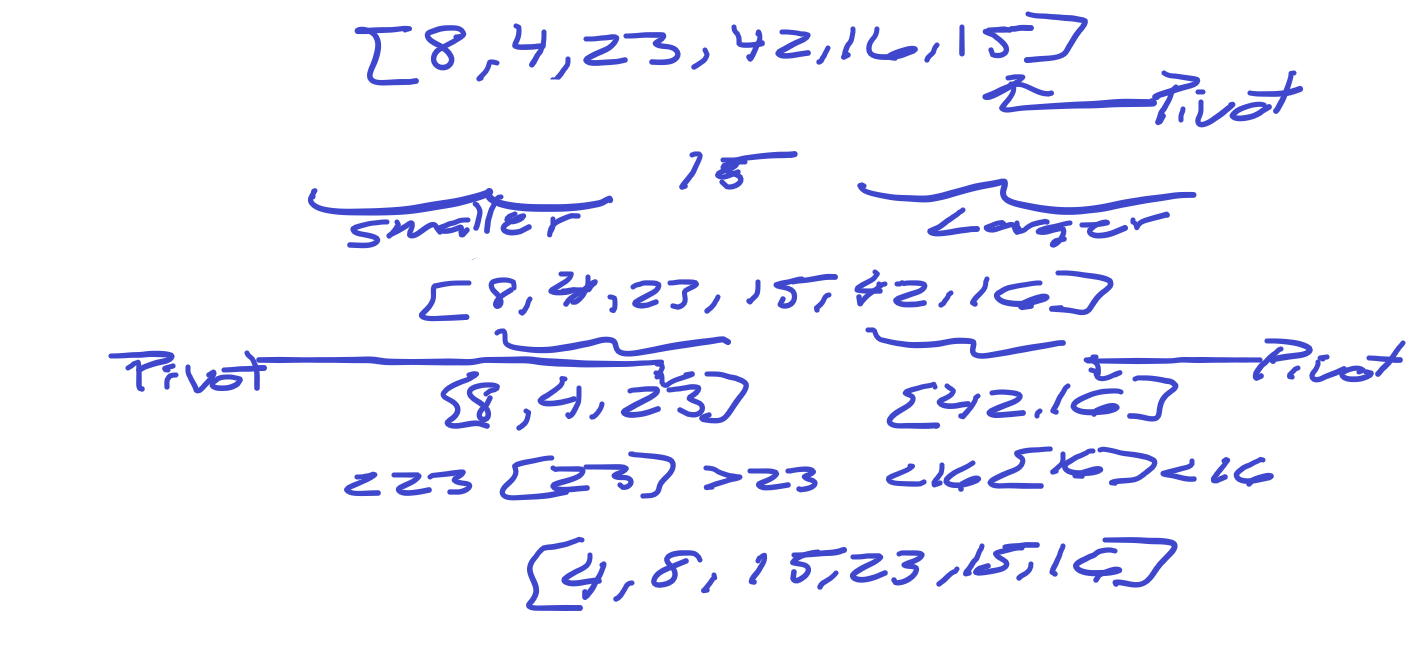 [8, 4, 23, 42, 16, 15]
Pivot
15
smaller Larger
[8, 4, 23, 15, 42, 16]
Pivot Pivot
[8, 4, 23] [42, 16]
<23 [23] >23 <16 [16] <16
[4, 8, 15, 23, 15, 16]